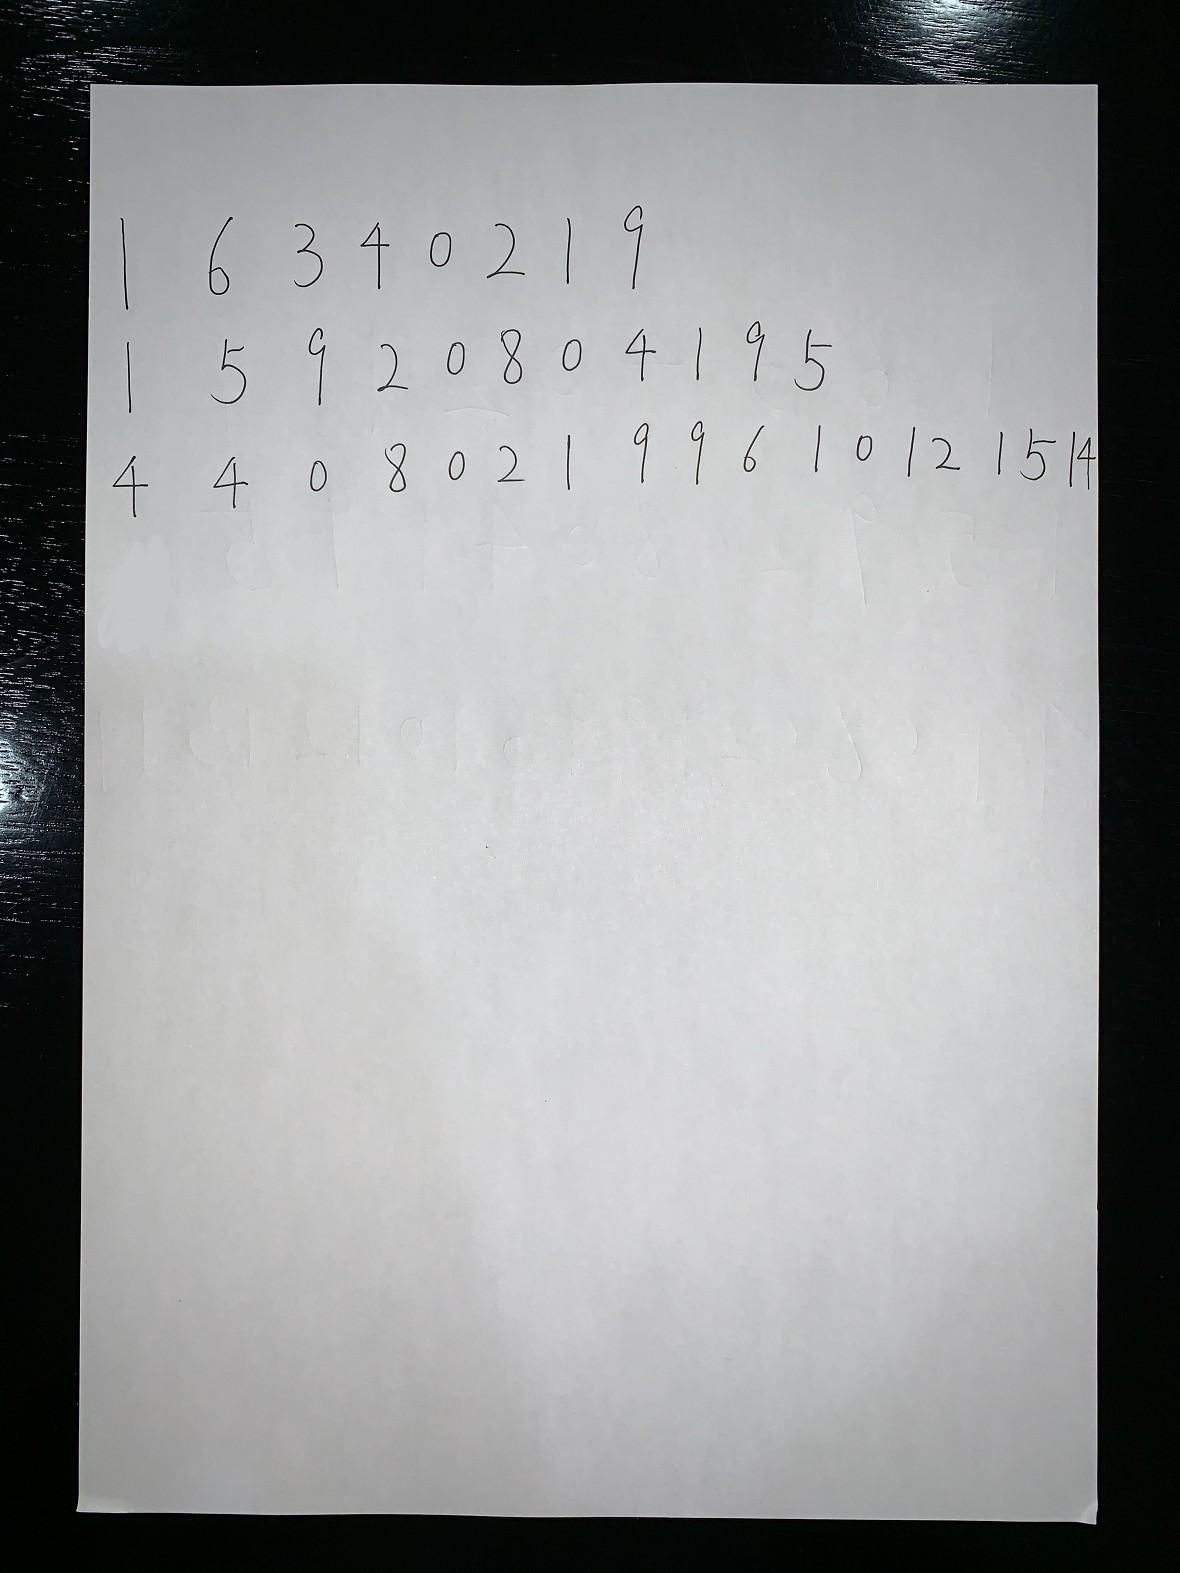 1 6 3 4 0 2 1 9
1 5 9 2 0 8 0 4 1 9 5
4 4 0 8 0 2 1 9 9 6 1 0 12 15 14